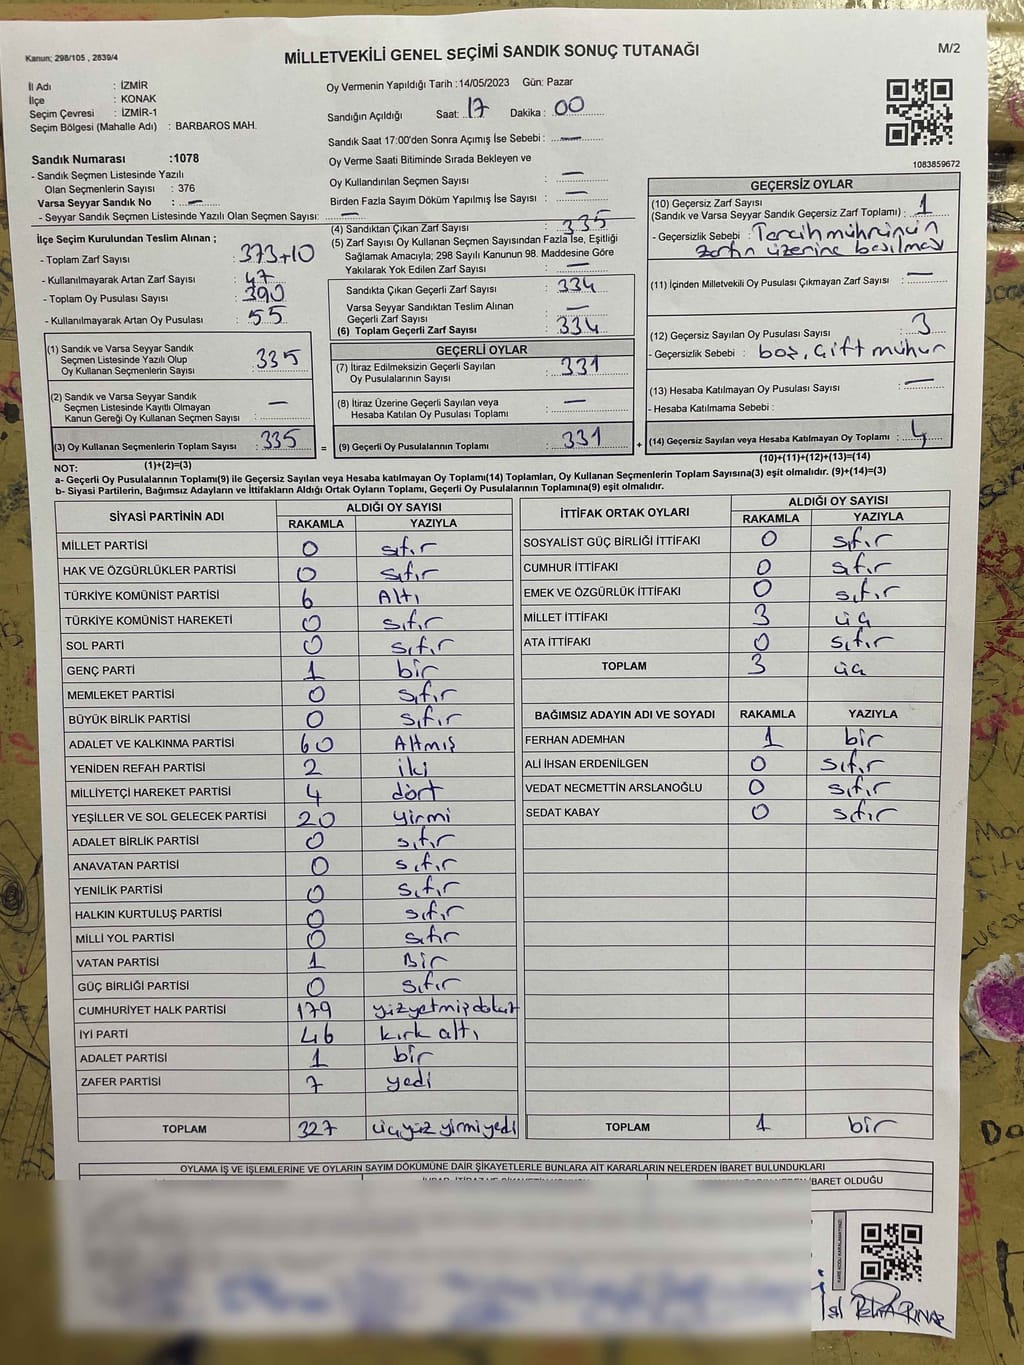 Kanun; 298/105 , 2839/4
MİLLETVEKİLİ GENEL SEÇİMİ SANDIK SONUÇ TUTANAĞI
M/2
İl Adı : İZMİR
İlçe : KONAK
Seçim Çevresi : İZMİR-1
Seçim Bölgesi (Mahalle Adı) : BARBAROS MAH.
Oy Vermenin Yapıldığı Tarih :14/05/2023 Gün: Pazar
Sandığın Açıldığı Saat: 17 Dakika : 00
Sandık Saat 17:00'den Sonra Açımış İse Sebebi : —
Oy Verme Saati Bitiminde Sırada Bekleyen ve
Oy Kullandırılan Seçmen Sayısı : —
Birden Fazla Sayım Döküm Yapılmış İse Sayısı : —
1083859672
Sandık Numarası :1078
- Sandık Seçmen Listesinde Yazılı
Olan Seçmenlerin Sayısı : 376
Varsa Seyyar Sandık No : —
- Seyyar Sandık Seçmen Listesinde Yazılı Olan Seçmen Sayısı: —
İlçe Seçim Kurulundan Teslim Alınan ;
- Toplam Zarf Sayısı : 373+10
- Kullanılmayarak Artan Zarf Sayısı : 47
- Toplam Oy Pusulası Sayısı : 390
- Kullanılmayarak Artan Oy Pusulası : 55
(1) Sandık ve Varsa Seyyar Sandık
Seçmen Listesinde Yazılı Olup
Oy Kullanan Seçmenlerin Sayısı : 335
(2) Sandık ve Varsa Seyyar Sandık
Seçmen Listesinde Kayıtlı Olmayan
Kanun Gereği Oy Kullanan Seçmen Sayısı : —
(3) Oy Kullanan Seçmenlerin Toplam Sayısı : 335
(1)+(2)=(3)
(4) Sandıktan Çıkan Zarf Sayısı : 335
(5) Zarf Sayısı Oy Kullanan Seçmen Sayısından Fazla İse, Eşitliği
Sağlamak Amacıyla; 298 Sayılı Kanunun 98. Maddesine Göre
Yakılarak Yok Edilen Zarf Sayısı : —
Sandıkta Çıkan Geçerli Zarf Sayısı : 334
Varsa Seyyar Sandıktan Teslim Alınan
Geçerli Zarf Sayısı : —
(6) Toplam Geçerli Zarf Sayısı : 334
GEÇERLİ OYLAR
(7) İtiraz Edilmeksizin Geçerli Sayılan
Oy Pusulalarının Sayısı : 331
(8) İtiraz Üzerine Geçerli Sayılan veya
Hesaba Katılan Oy Pusulası Toplamı : —
= (9) Geçerli Oy Pusulalarının Toplamı : 331 +
GEÇERSİZ OYLAR
(10) Geçersiz Zarf Sayısı
(Sandık ve Varsa Seyyar Sandık Geçersiz Zarf Toplamı) : 1
- Geçersizlik Sebebi : Tercih mührünün
zarfın üzerine basılması
(11) İçinden Milletvekili Oy Pusulası Çıkmayan Zarf Sayısı : —
(12) Geçersiz Sayılan Oy Pusulası Sayısı : 3
- Geçersizlik Sebebi : boş, Çift mühür
(13) Hesaba Katılmayan Oy Pusulası Sayısı : —
- Hesaba Katılmama Sebebi :
(14) Geçersiz Sayılan veya Hesaba Katılmayan Oy Toplamı : 4
(10)+(11)+(12)+(13)=(14)
NOT:
a- Geçerli Oy Pusulalarının Toplamı(9) ile Geçersiz Sayılan veya Hesaba katılmayan Oy Toplamı(14) Toplamları, Oy Kullanan Seçmenlerin Toplam Sayısına(3) eşit olmalıdır. (9)+(14)=(3)
b- Siyasi Partilerin, Bağımsız Adayların ve İttifakların Aldığı Ortak Oyların Toplamı, Geçerli Oy Pusulalarının Toplamına(9) eşit olmalıdır.
SİYASİ PARTİNİN ADI ALDIĞI OY SAYISI
RAKAMLA YAZIYLA
MİLLET PARTİSİ 0 sıfır
HAK VE ÖZGÜRLÜKLER PARTİSİ 0 sıfır
TÜRKİYE KOMÜNİST PARTİSİ 6 Altı
TÜRKİYE KOMÜNİST HAREKETİ 0 sıfır
SOL PARTİ 0 sıfır
GENÇ PARTİ 1 bir
MEMLEKET PARTİSİ 0 sıfır
BÜYÜK BİRLİK PARTİSİ 0 sıfır
ADALET VE KALKINMA PARTİSİ 60 Altmış
YENİDEN REFAH PARTİSİ 2 iki
MİLLİYETÇİ HAREKET PARTİSİ 4 dört
YEŞİLLER VE SOL GELECEK PARTİSİ 20 yirmi
ADALET BİRLİK PARTİSİ 0 sıfır
ANAVATAN PARTİSİ 0 sıfır
YENİLİK PARTİSİ 0 sıfır
HALKIN KURTULUŞ PARTİSİ 0 sıfır
MİLLİ YOL PARTİSİ 0 sıfır
VATAN PARTİSİ 1 Bir
GÜÇ BİRLİĞİ PARTİSİ 0 sıfır
CUMHURİYET HALK PARTİSİ 179 yüzyetmişdokuz
İYİ PARTİ 46 kırk altı
ADALET PARTİSİ 1 bir
ZAFER PARTİSİ 7 yedi
TOPLAM 327 üçyüz yirmi yedi
İTTİFAK ORTAK OYLARI ALDIĞI OY SAYISI
RAKAMLA YAZIYLA
SOSYALİST GÜÇ BİRLİĞİ İTTİFAKI 0 sıfır
CUMHUR İTTİFAKI 0 sıfır
EMEK VE ÖZGÜRLÜK İTTİFAKI 0 sıfır
MİLLET İTTİFAKI 3 üç
ATA İTTİFAKI 0 sıfır
TOPLAM 3 üç
BAĞIMSIZ ADAYIN ADI VE SOYADI RAKAMLA YAZIYLA
FERHAN ADEMHAN 1 bir
ALİ İHSAN ERDENİLGEN 0 sıfır
VEDAT NECMETTİN ARSLANOĞLU 0 sıfır
SEDAT KABAY 0 sıfır
TOPLAM 1 bir
OYLAMA İŞ VE İŞLEMLERİNE VE OYLARIN SAYIM DÖKÜMÜNE DAİR ŞİKAYETLERLE BUNLARA AİT KARARLARIN NELERDEN İBARET BULUNDUKLARI
İBARET OLDUĞU